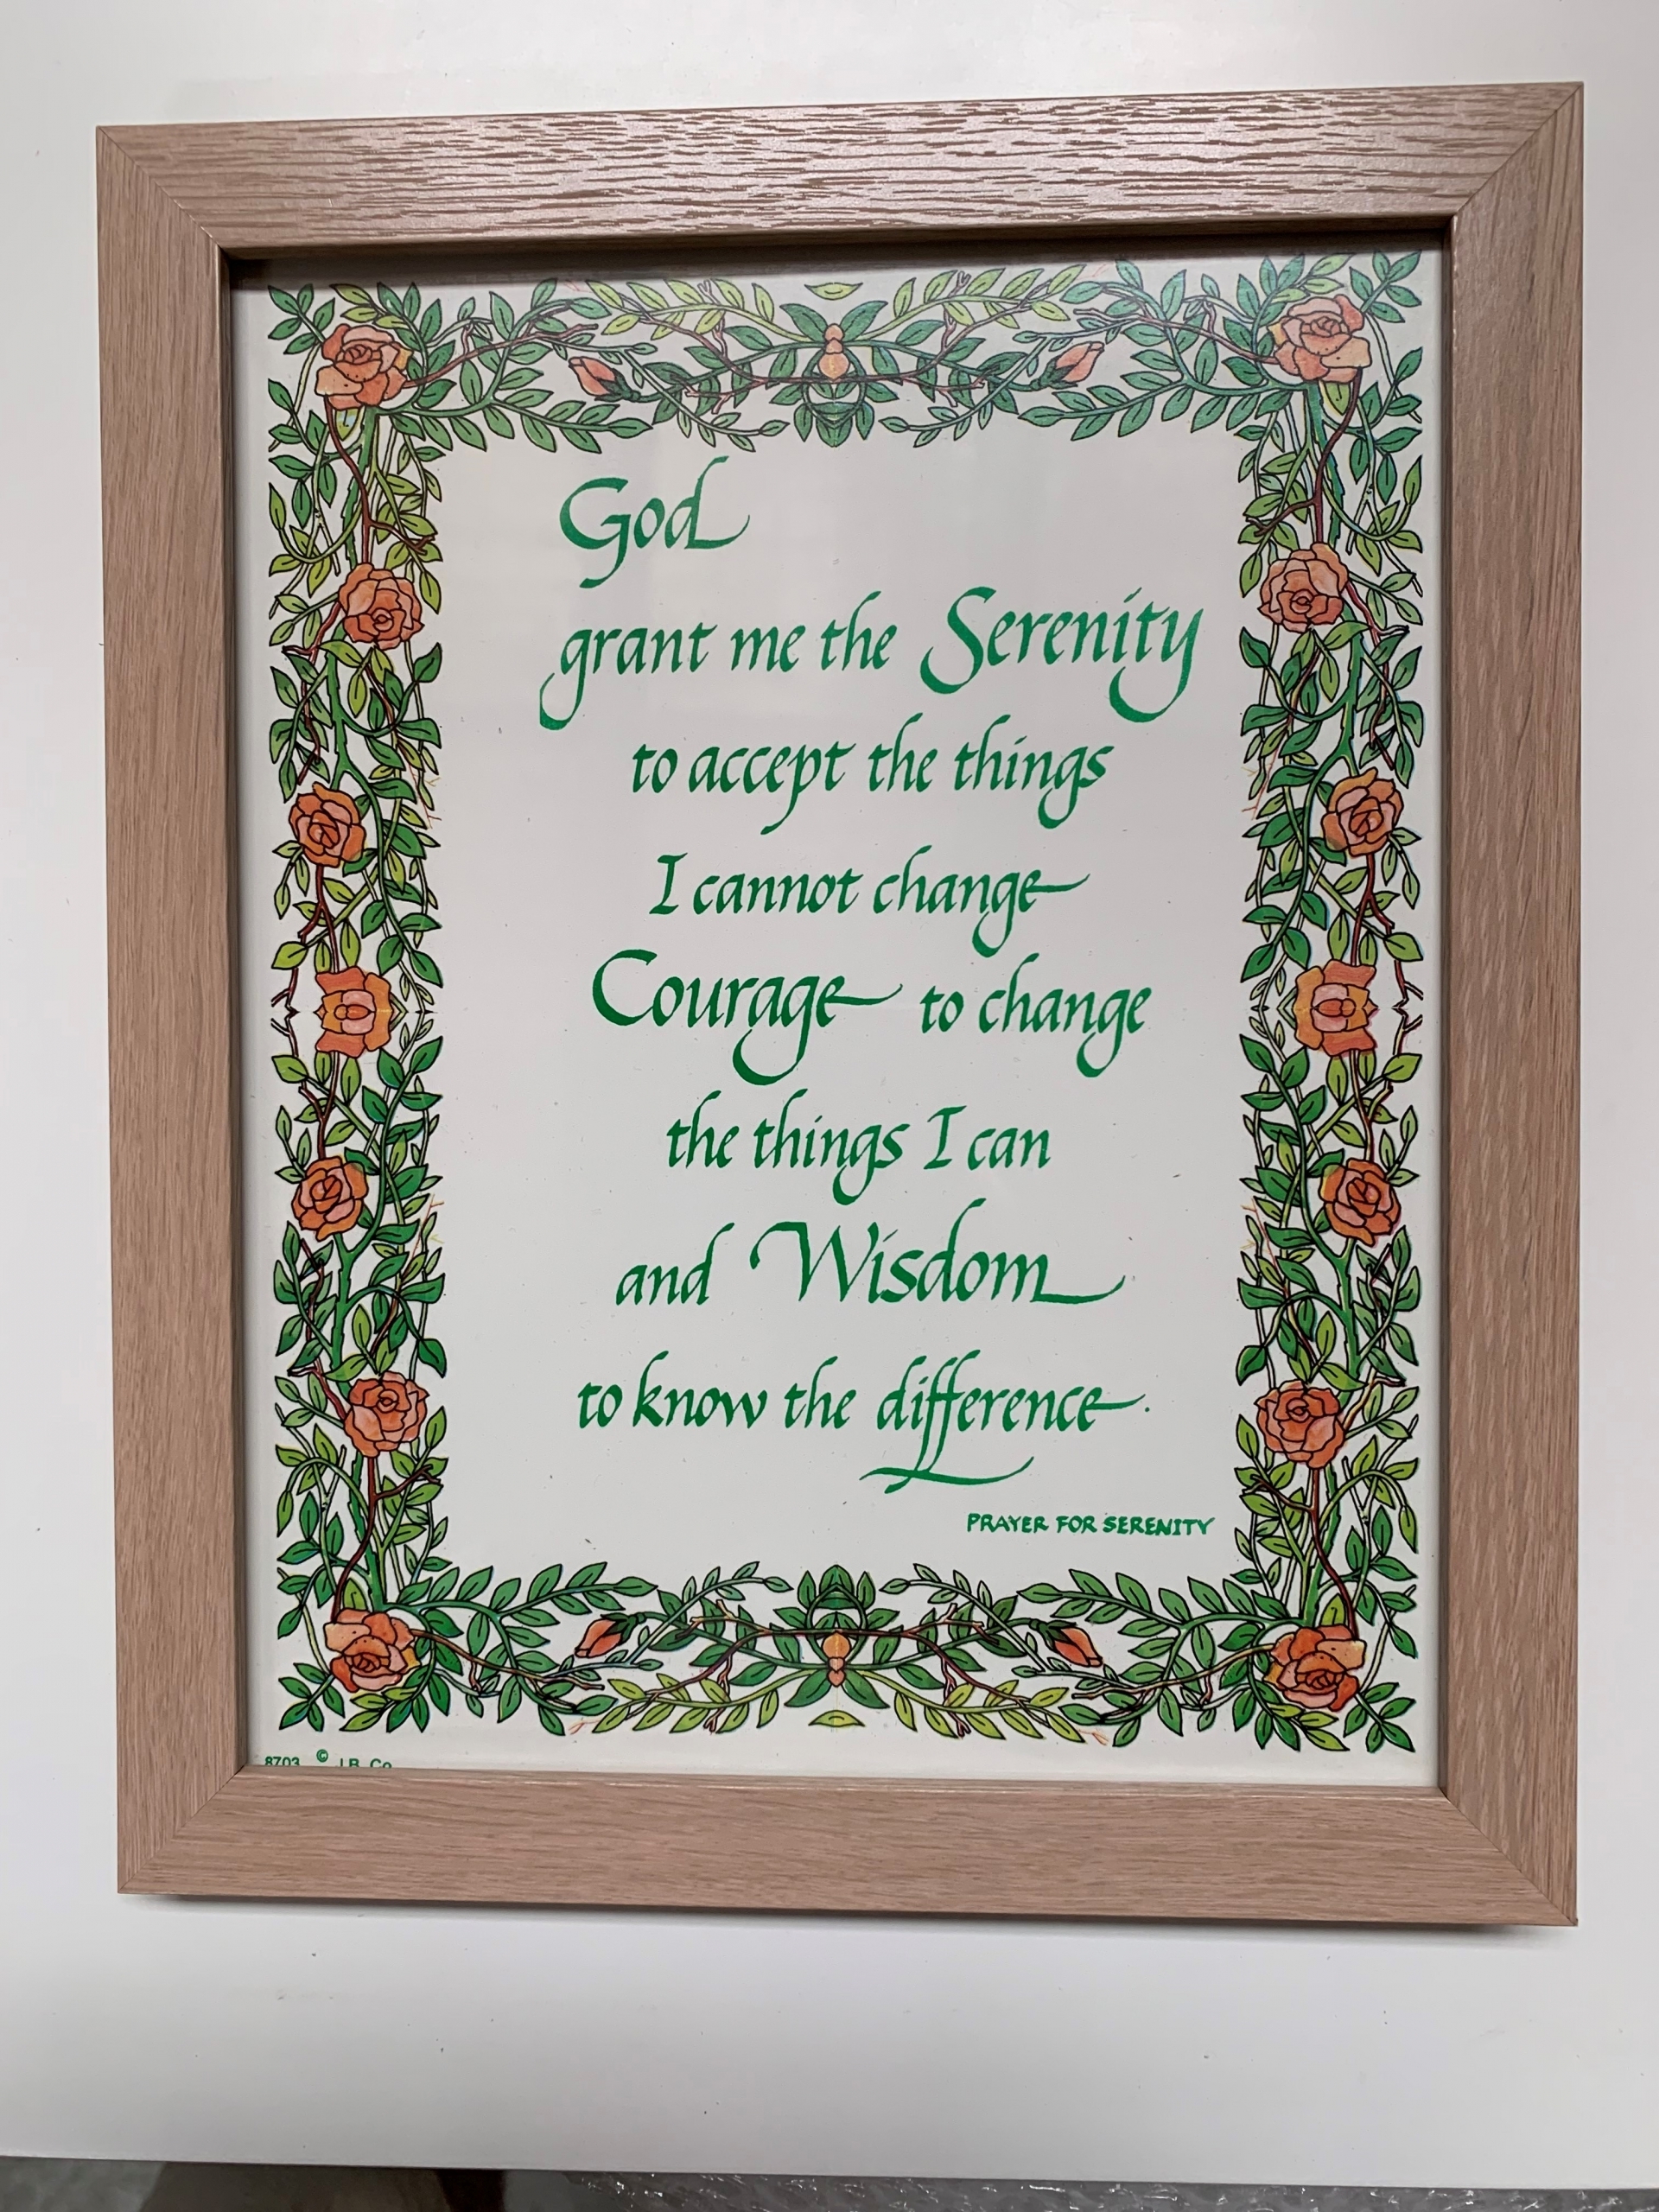 God
grant me the Serenity
to accept the things
I cannot change
Courage to change
the things I can
and Wisdom
to know the difference.
PRAYER FOR SERENITY
8703 © J.B. Co